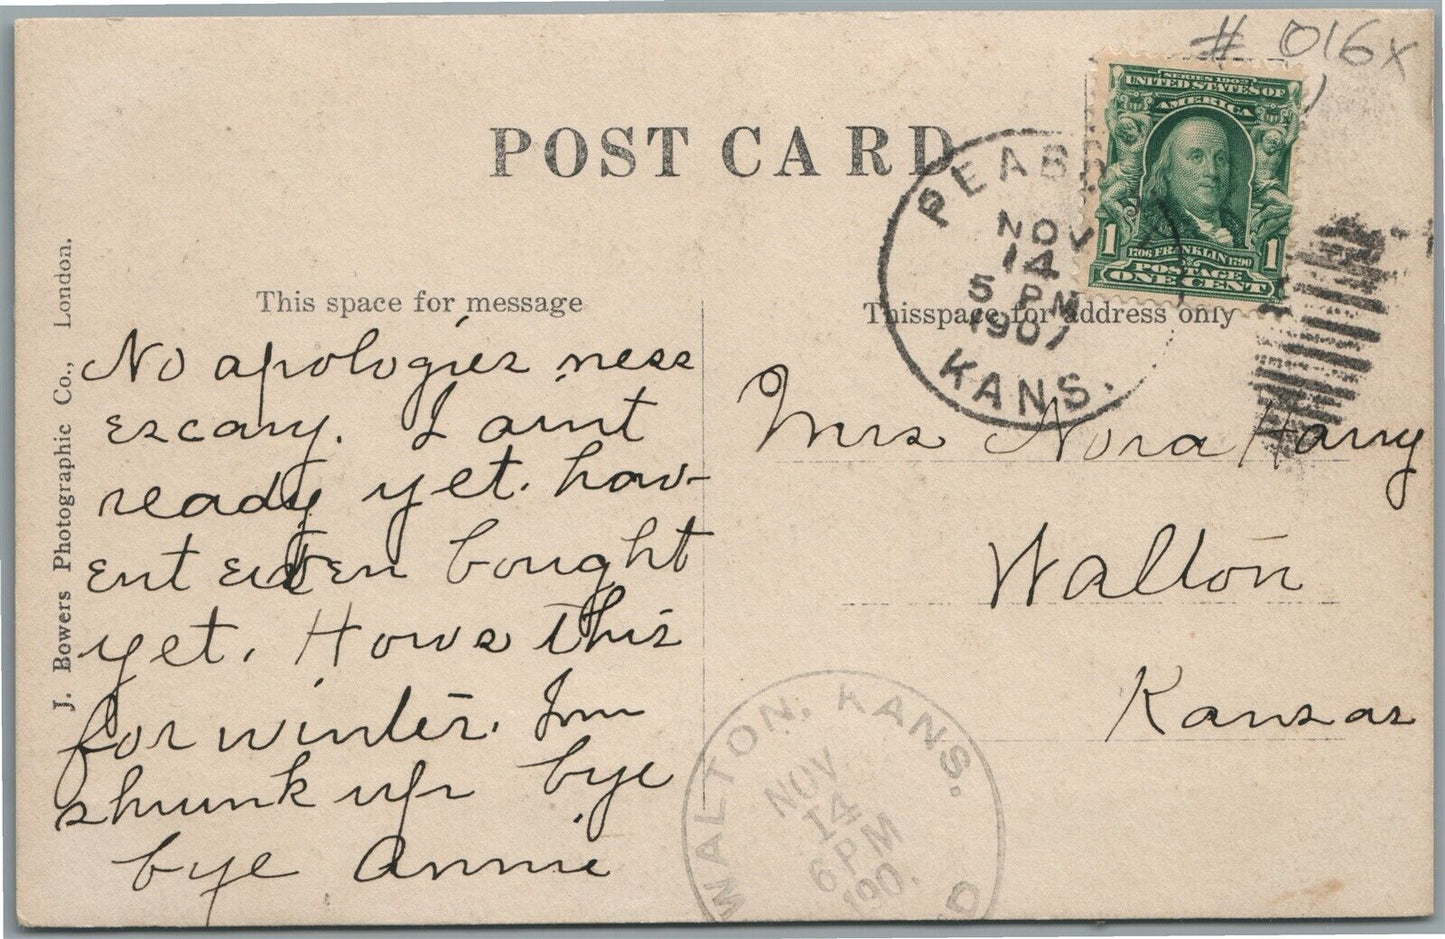 # 016x
SERIES 1902
UNITED STATES OF
AMERICA
1 1
1706 FRANKLIN 1790
POSTAGE
ONE CENT
POST CARD
PEABODY
NOV
14
5 PM
1907
KANS.
This space for message
Thisspace for address only
J. Bowers Photographic Co., London.
No apologies ness
escary. I aint
ready yet. hav-
ent even bought
yet. Hows this
for winter. Im
shrunk up bye
bye Annie
Mrs Nora Harry
Walton
Kansas
WALTON, KANS.
NOV
14
6 PM
190